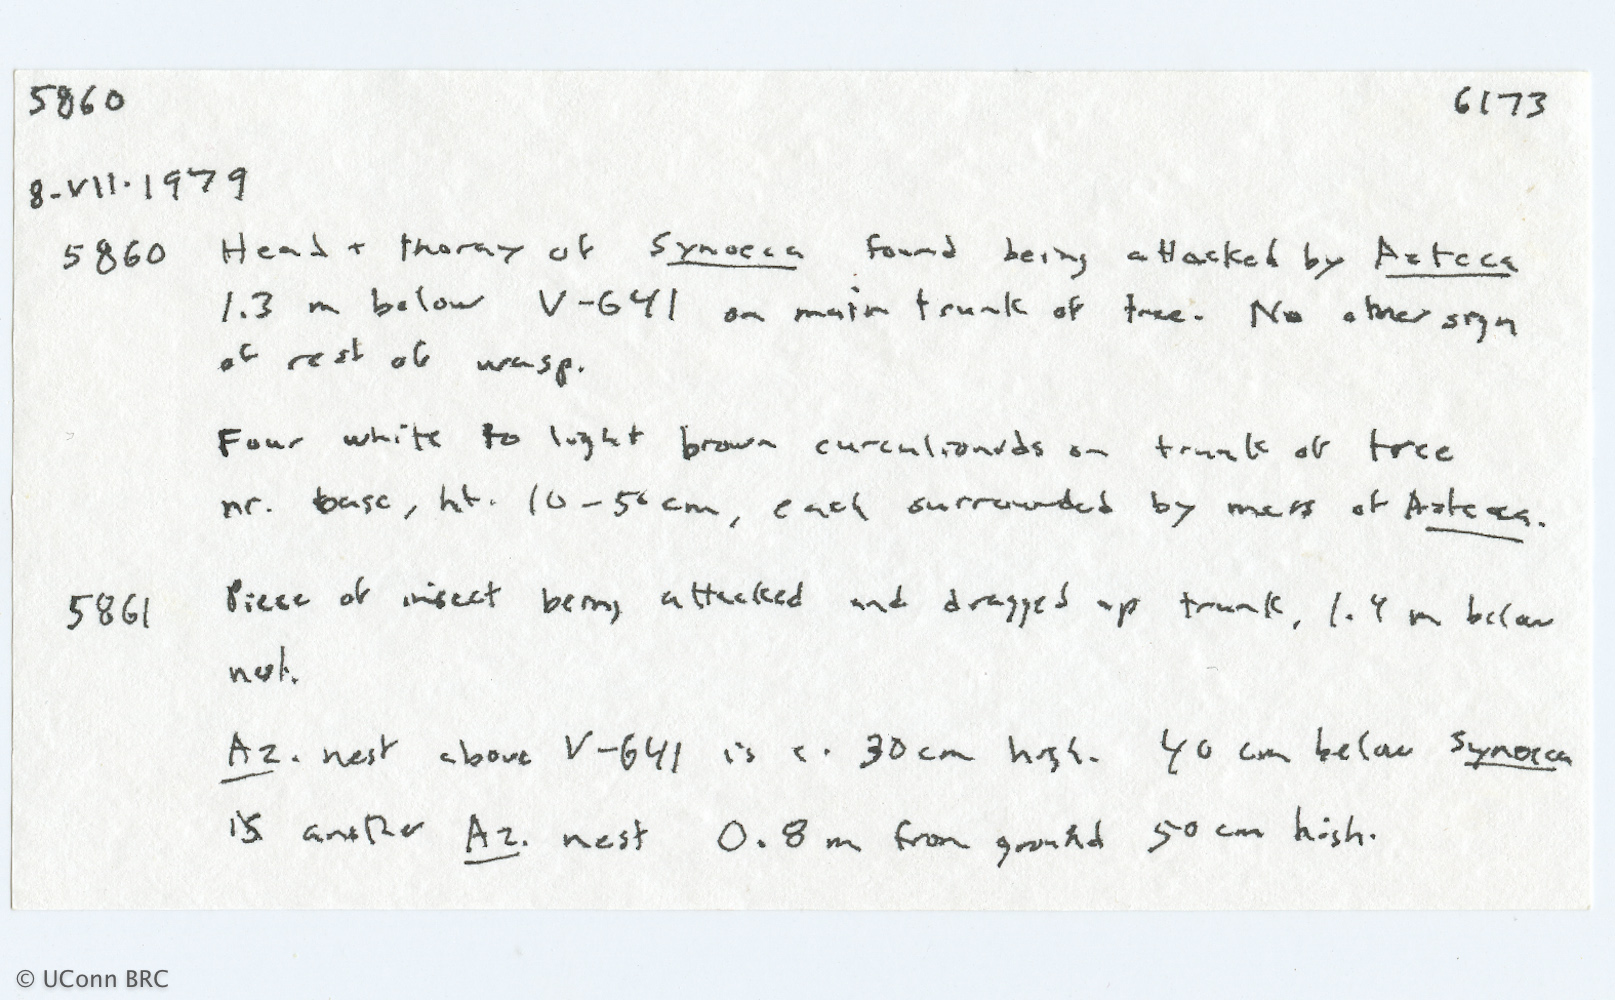 5860 6173
8-VII-1979
5860 Head + thorax of Synoeca found being attacked by Azteca
1.3 m below V-641 on main trunk of tree. No other sign
of rest of wasp.
Four white to light brown curculionids on trunk of tree
nr. base, ht. 10-50 cm, each surrounded by mass of Azteca.
5861 Piece of insect being attacked and dragged up trunk, 1.4 m below
nest.
Az. nest above V-641 is c. 30 cm high. 40 cm below Synoeca
is another Az. nest 0.8 m from ground 50 cm high.
© UConn BRC